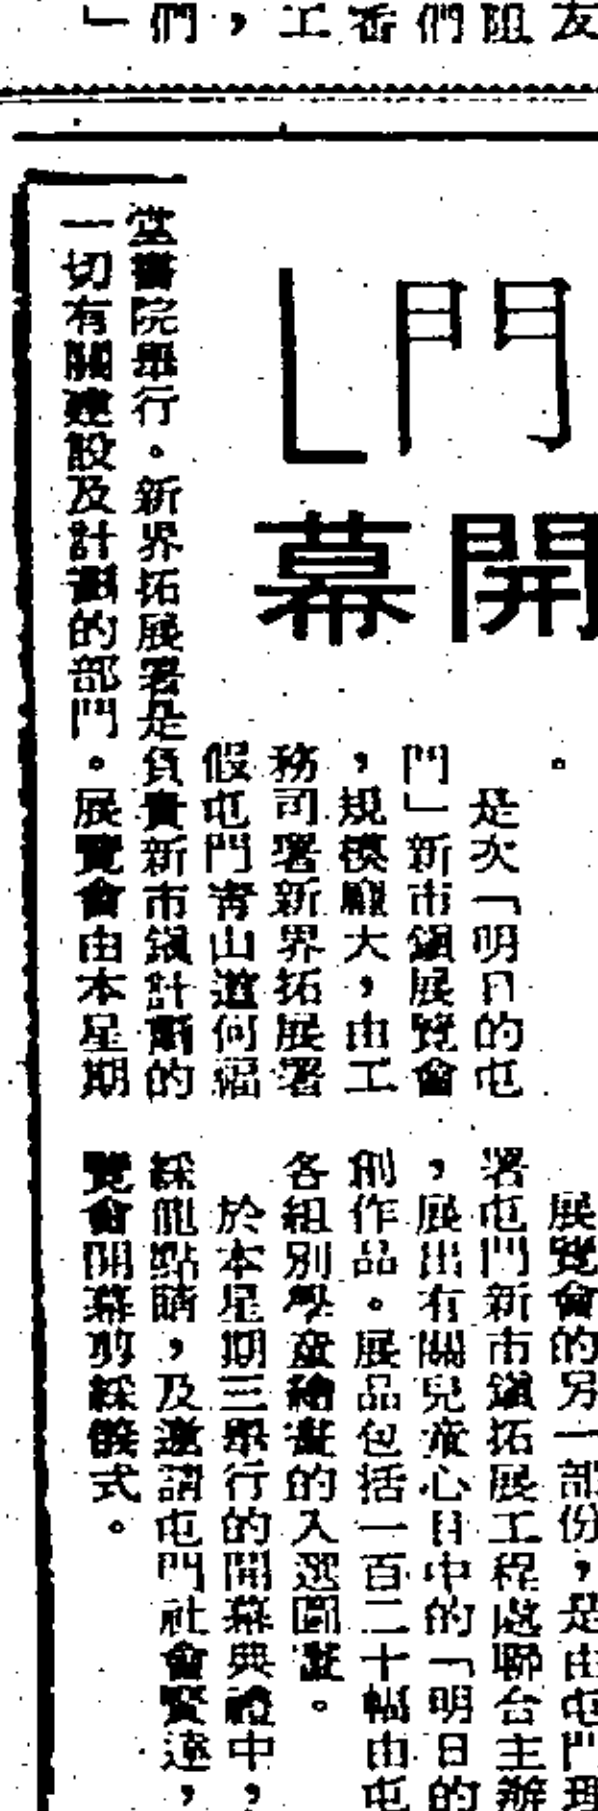 友阻們番工，們」
門」
開幕
。
是次「明日的屯
門」新市鎮展覽會
，規模龐大，由工
務司署新界拓展署
假屯門青山道何福
堂書院舉行。新界拓展署是負責新市鎮計劃的
一切有關建設及計劃的部門。展覽會由本星期
展覽會的另一部份，是由屯門理
署屯門新市鎮拓展工程處聯合主辦
，展出有關兒童心目中的「明日的
創作品。展品包括一百二十幅由屯
各組別學童繪畫的入選圖畫。
於本星期三舉行的開幕典禮中，
綵龍點睛，及邀請屯門社會賢達，
覽會開幕剪綵儀式。